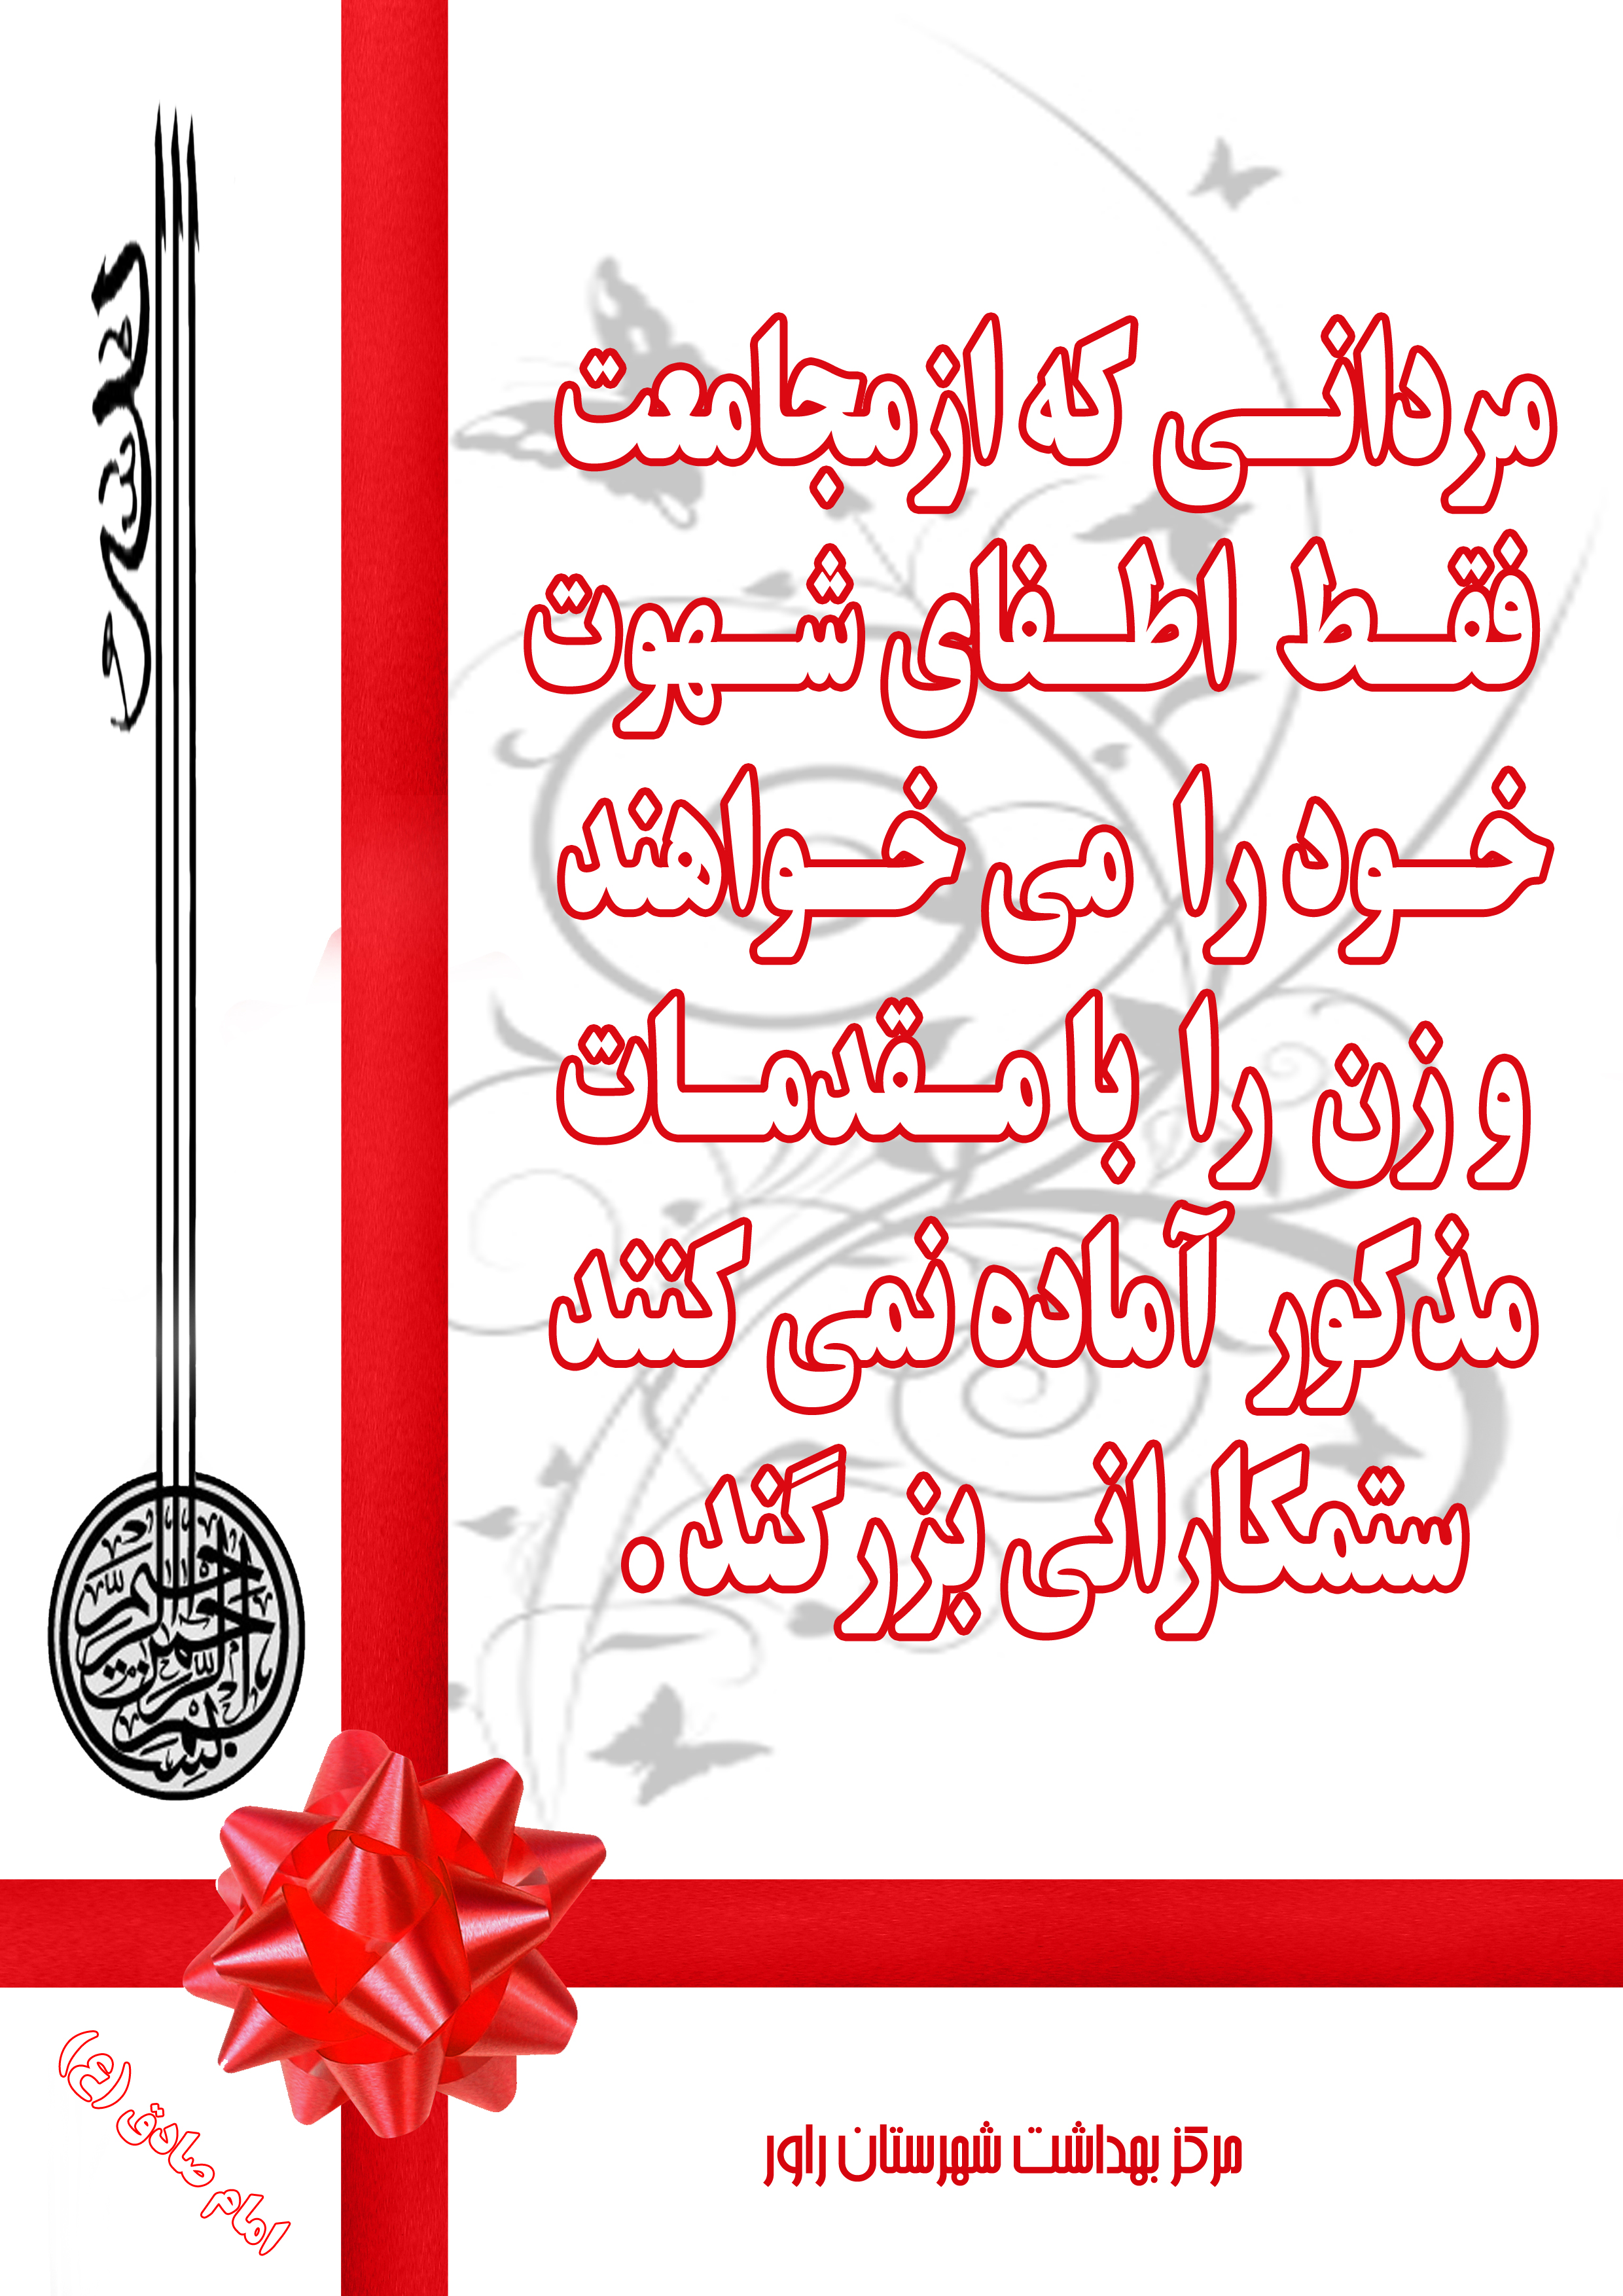 مردانی که از مجامعت
فقط اطفای شهوت
خود را می خواهند
و زن را با مقدمات
مذکور آماده نمی کنند
ستمکارانی بزرگند.
بسم الله الرحمن الرحیم
امام صادق (ع)
مرکز بهداشت شهرستان راور